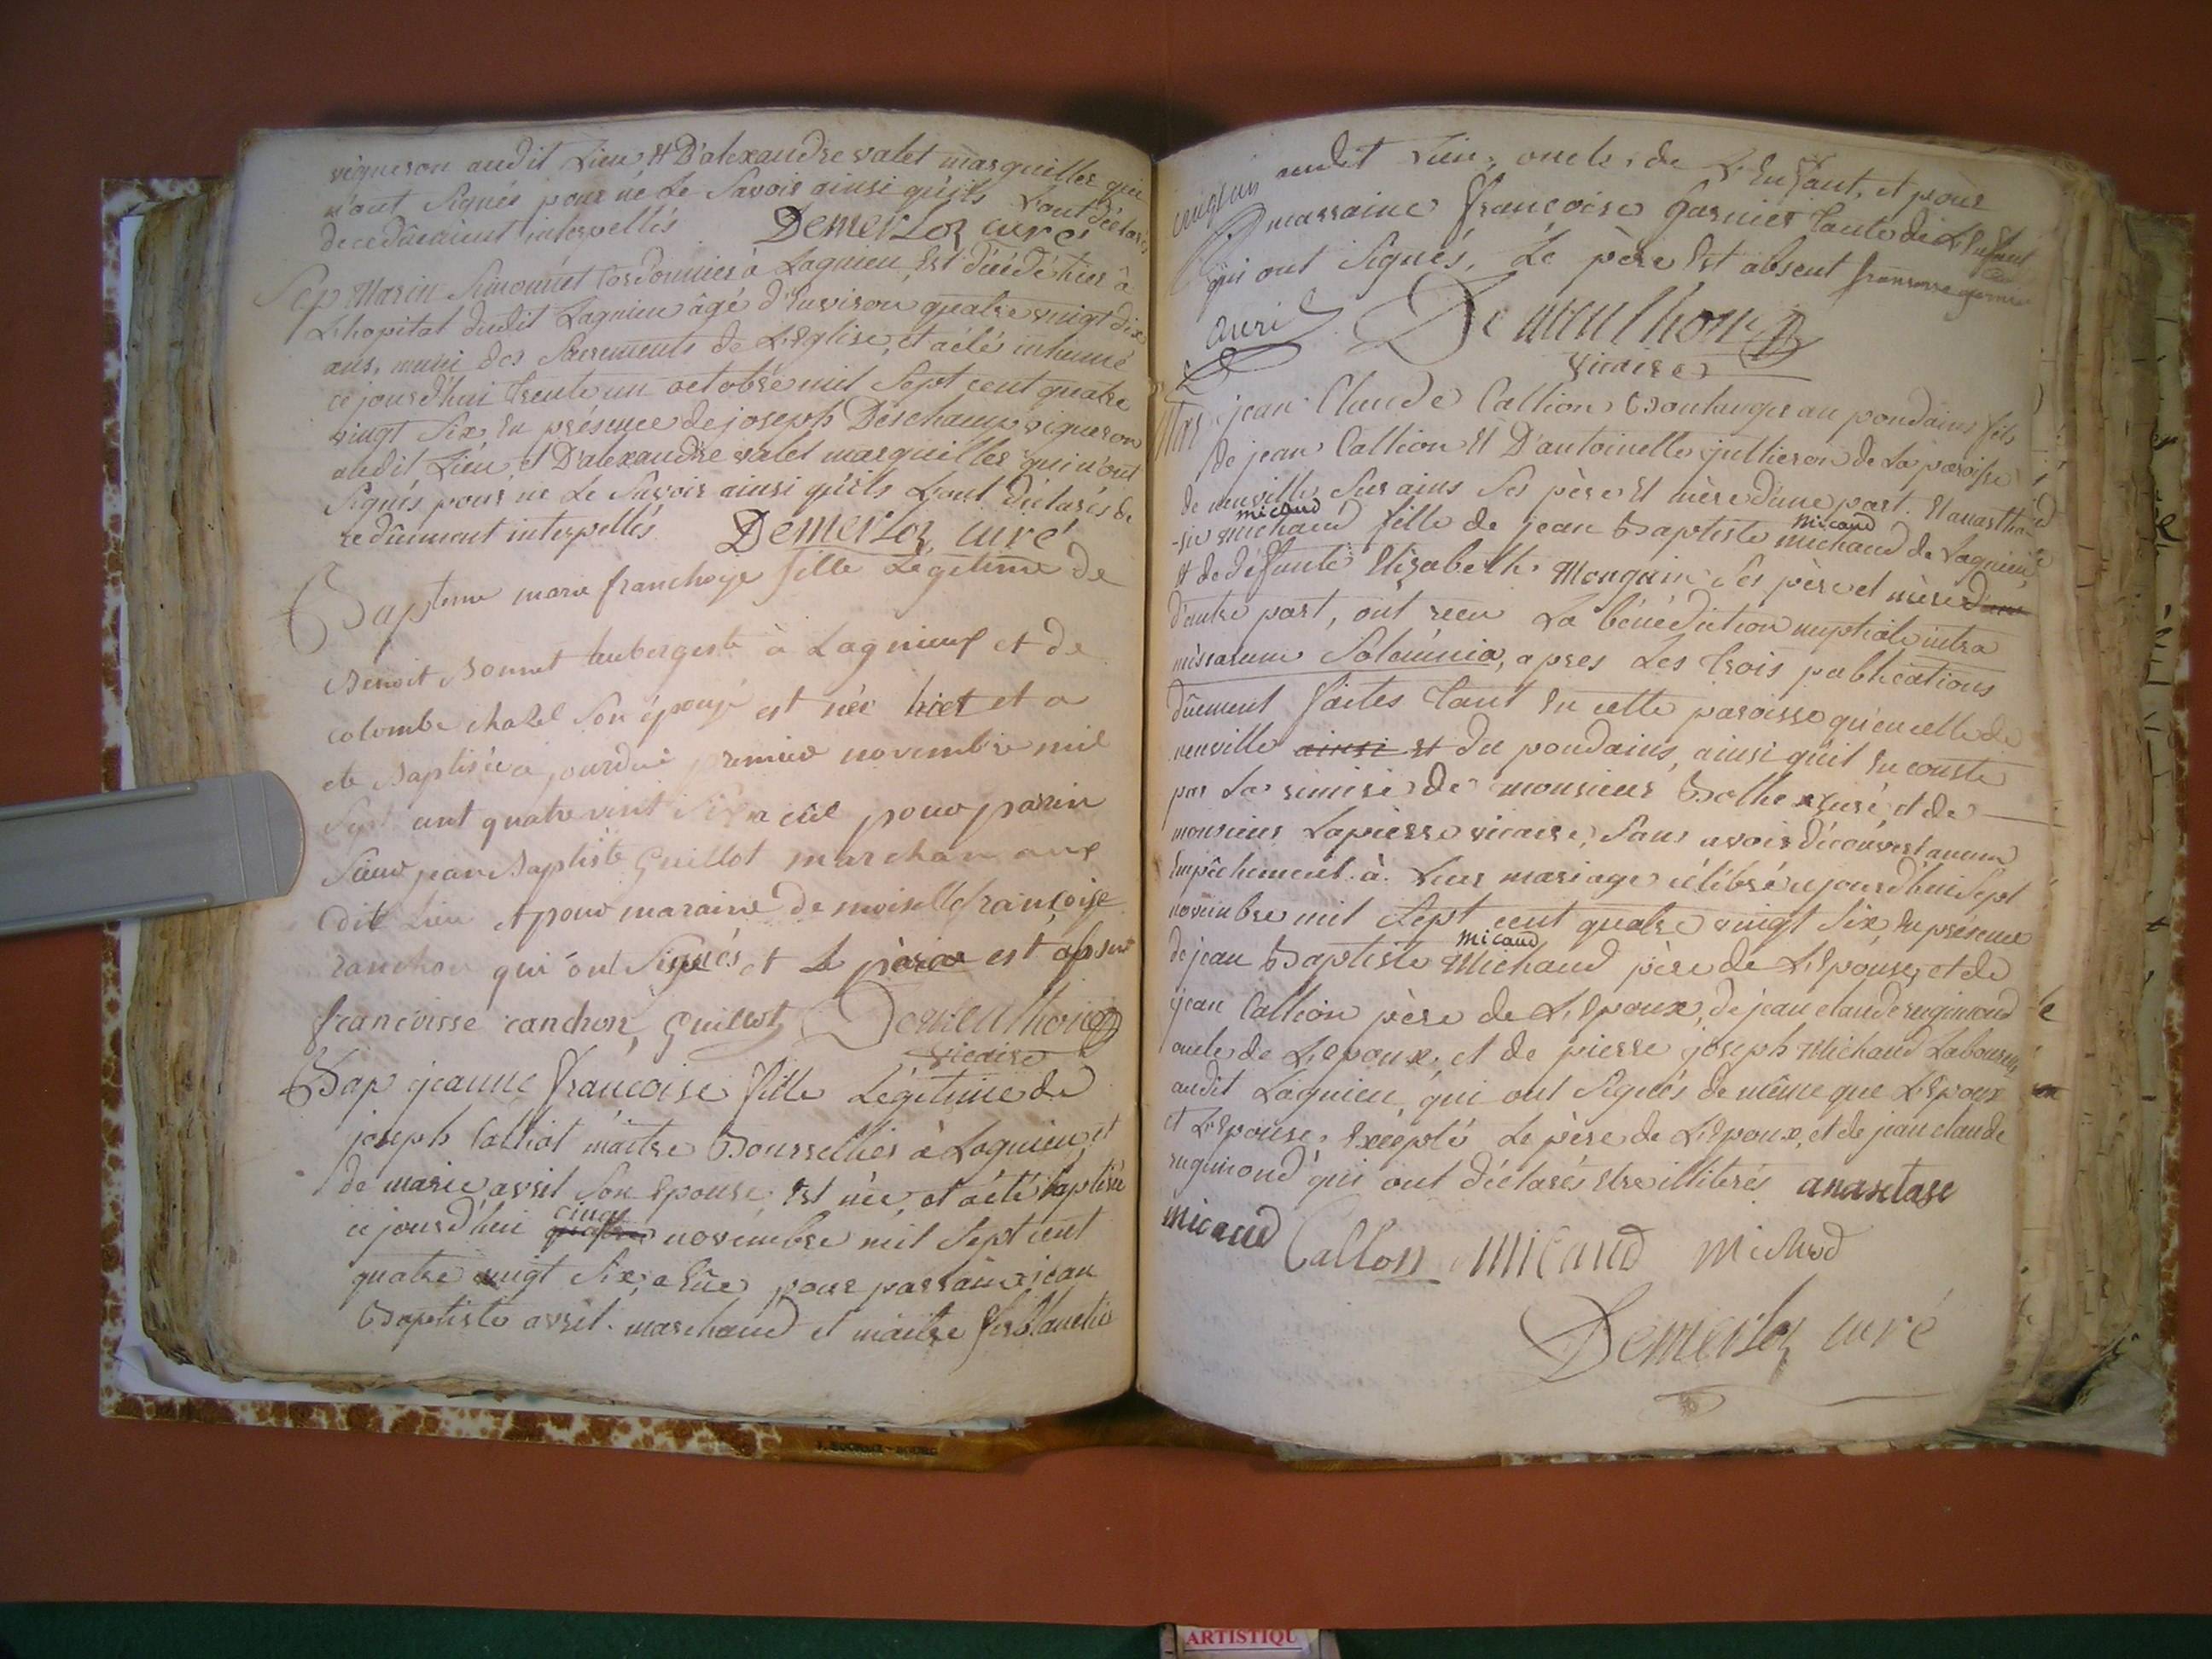 vigneron audit Lieu, et D'alexandre valet marguiller qui
n'ont Signés pour ne Le Savoir ainsi qu'ils L'ont déclarés
de ce dûement interpellés Demerloz curé
Sep Marin Simonnet Cordonnier à Lagnieu, Est décédé hier à
L'hopital dudit Lagnieu âgé d'Environ quatre vingt dix
ans, muni des Sacrements de L'Eglise, et a été inhumé
ce jourd'hui trente un octobre mil Sept cent quatre
vingt Six, En présence de joseph Deschamp vigneron
audit Lieu, et D'alexandre valet marguiller qui n'ont
Signés pour ne Le Savoir ainsi qu'ils L'ont déclarés de
ce dûment interpellés Demerloz, curé
Bapteme marie franchoise fille Légitime de
Benoit Bonnet aubergeste à Lagnieux et de
colombe chazel Son épouse est née hier et a
ete Baptisée a jourdui premier novembre mil
Sept cent quatre vint Six a eûe pour parin
Sieur jean Baptiste Guillot marchan aux
dit Lieu et pour maraine demoiselle françoise
ranchon qui ont Signés et Le père est absent
francoisse ranchon, Guillot, Demeulhon
vicaire
Bap jeanne francoise fille Légitime de
joseph Calliat maitre Boursellier à Lagnieu, et
de marie avril Son Epouse, Est née, et a été baptisée
cinq
ce jourd'hui quatre novembre mil Sept cent
quatre vingt Six, a Eûe pour parrain jean
Baptiste avril marchand et maitre ferblantie
audit Lieu, oncle, de L'Enfant, et pour
marraine francoise garnier tante de L'Enfant
qui ont Signés, Le père Est absent fransoise garnier
avril Demeulhon
vicaire
Mar jean Claude Callion Boulanger au pondains fils
de jean Callion Et D'antoinette jullieron de La paroisse
de neuville Sur ains Ses père Et mère d'une part. Et anastha
micaud micaud
-sie michaud fille de jean Baptiste michaud de Lagnieu,
Et de déffunte Elizabeth Mongain Ses père et mère d'une
d'autre part, ont reçu La bénédiction nuptiale intra
missarum Solemnia, apres Les trois publications
dûement faites tant En cette paroisse qu'en celle de
neuville ainsi et du pondains, ainsi qu'il En conste
par La remise de monsieur Bolhe curé, et de
monsieur Lapierre vicaire, Sans avoir découvert aucun
Empêchement à Leur mariage célébré ce jourd'hui Sept
novembre mil Sept cent quatre vingt Six, En présence
micaud
de jean Baptiste Michaud père de L'Epouse, et de
jean Callion père de L'Epoux, de jean claude reginond
oncle de L'Epoux, et de pierre joseph Michaud Laboureur
audit Lagnieu, qui ont Signés de même que L'Epoux
et L'Epouse, Excepté Le père de L'Epoux, et de jean claude
reginond qui ont déclarés Etre illiterés anaxtase
micaud Callon micaud michud
Demerloz curé
ARTISTIQU